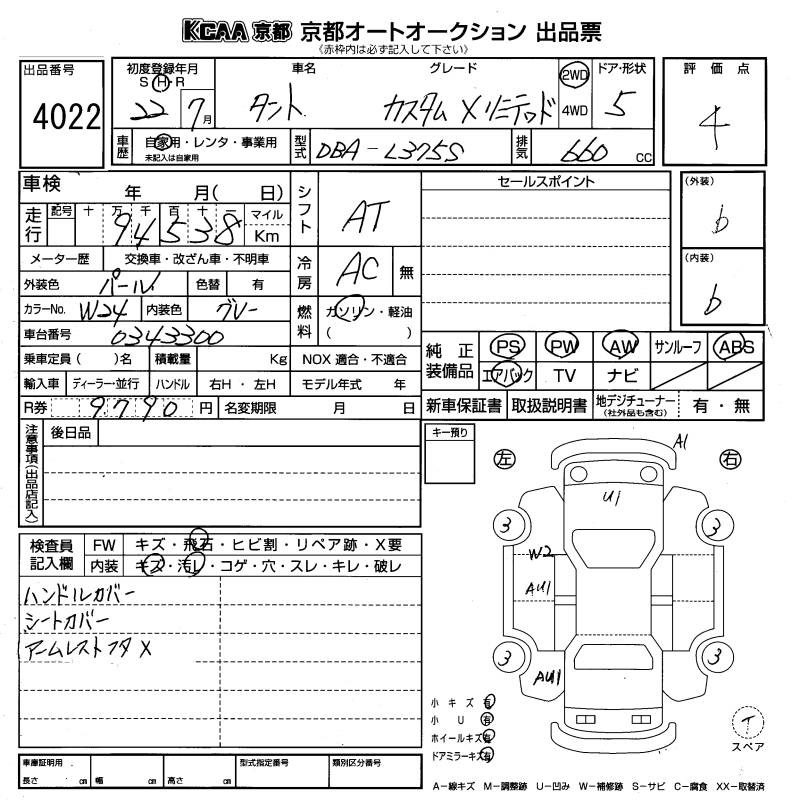 KCAA 京都 京都オートオークション 出品票
《赤枠内は必ず記入して下さい》
出品番号 4022
初度登録年月 S H R 22 7月
車名 タント
グレード カスタム Xリミテッド
2WD 4WD
ドア・形状 5
評価点 4
車歴 自家用・レンタ・事業用
未記入は自家用
型式 DBA-L375S
排気 660 CC
車検 年 月( 日)
シフト AT
セールスポイント
(外装) b
走行 記号 十 万 千 百 十 一 マイル
94538 Km
メーター歴 交換車・改ざん車・不明車
冷房 AC 無
(内装) b
外装色 パール 色替 有
カラーNo. W24 内装色 グレー
燃料 ガソリン・軽油
( )
車台番号 0343300
純正装備品 PS PW AW サンルーフ ABS
エアバック TV ナビ
乗車定員( )名 積載量 Kg NOX 適合・不適合
輸入車 ディーラー・並行 ハンドル 右H・左H モデル年式 年
R券 9790 円 名変期限 月 日
新車保証書 取扱説明書 地デジチューナー (社外品も含む) 有・無
注意事項(出品店記入) 後日品
キー預り
左 右
A1
U1
3 3
W2
AU1
3 3
AU1
検査員記入欄 FW キズ・飛石・ヒビ割・リペア跡・X要
内装 キズ・汚レ・コゲ・穴・スレ・キレ・破レ
ハンドルカバー
シートカバー
アームレストフタ X
小キズ 有
小U 有
ホイールキズ 有
ドアミラーキズ 有
T
スペア
車庫証明用 長さ cm 幅 cm 高さ cm
型式指定番号 類別区分番号
A-線キズ M-調整跡 U-凹み W-補修跡 S-サビ C-腐食 XX-取替済